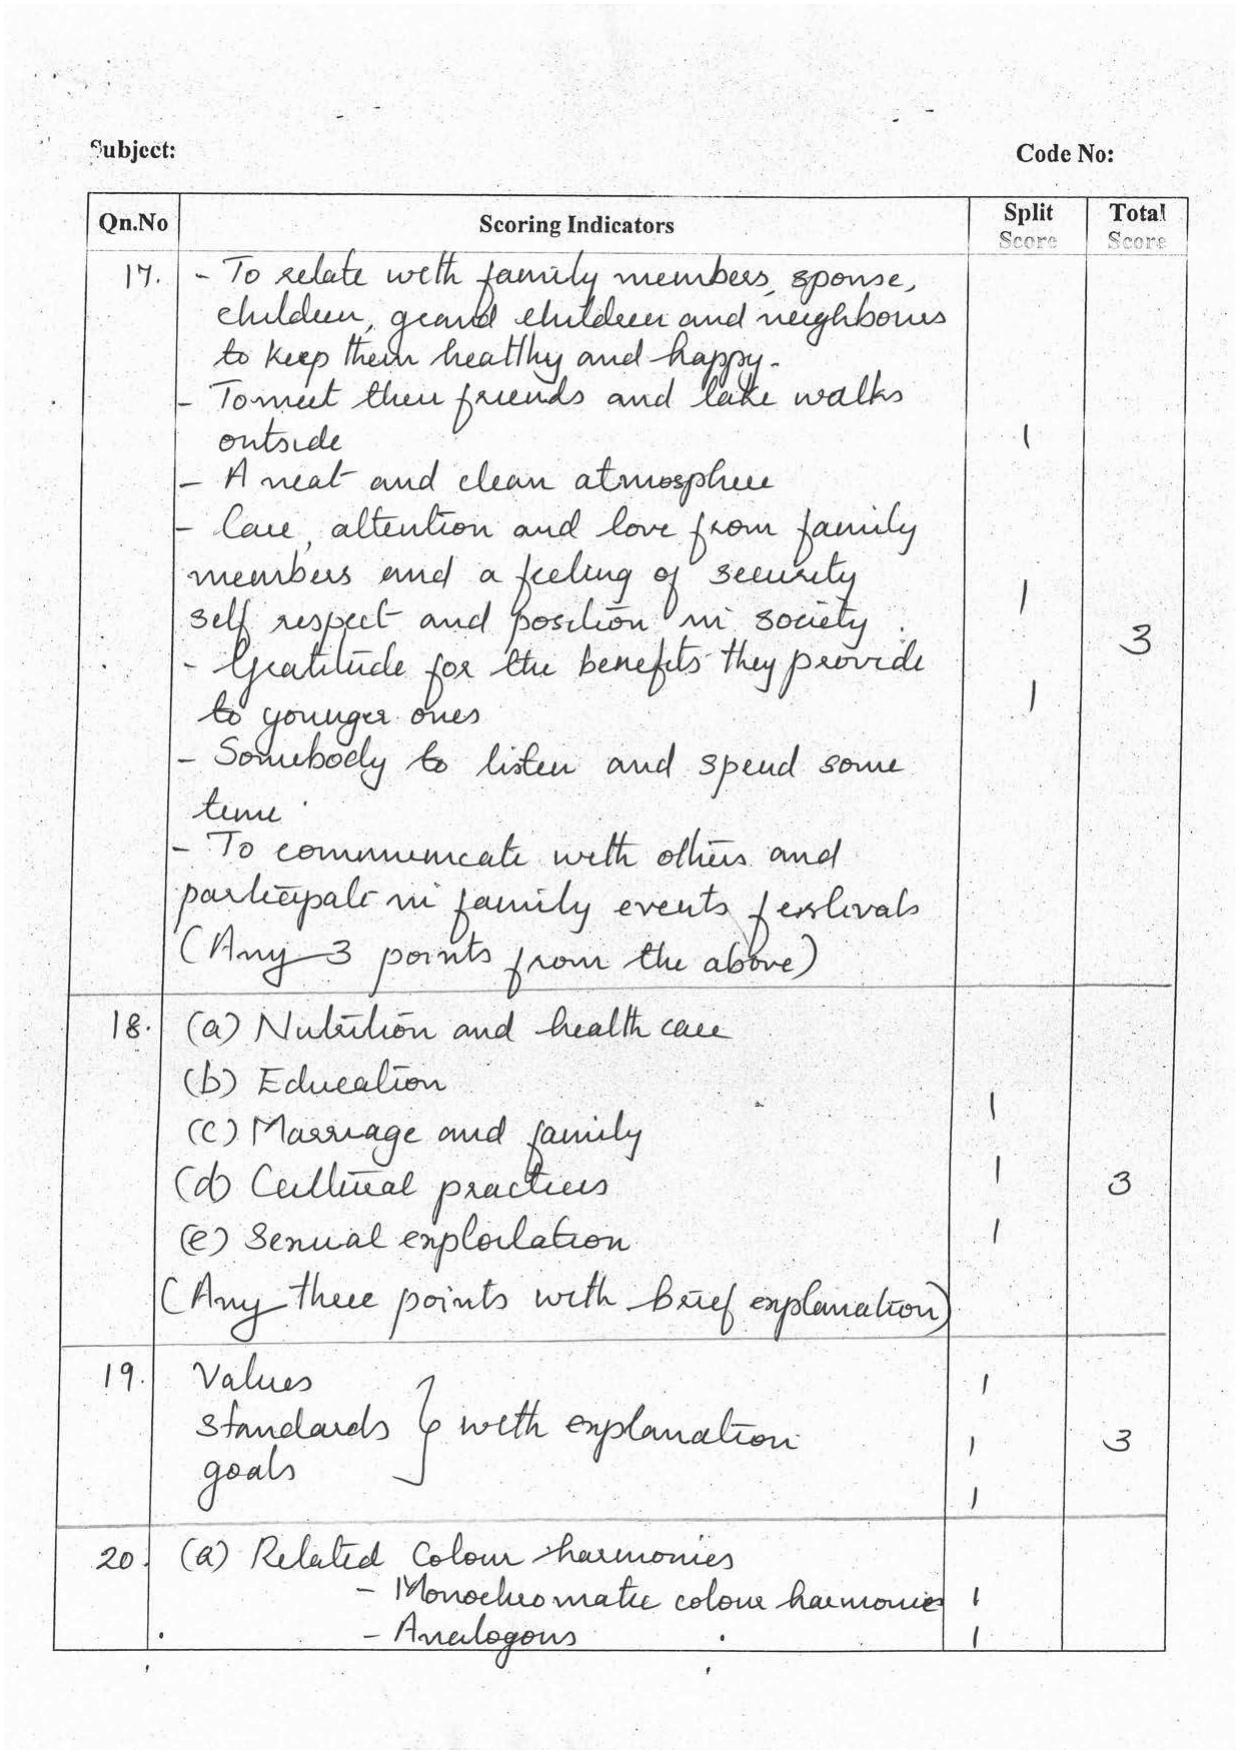 Subject:
Code No:
Qn.No Scoring Indicators Split Score Total Score
17. - To relate with family members, spouse,
children, grand children and neighbours
to keep them healthy and happy.
- To meet their friends and take walks
outside 1
- A neat and clean atmosphere
- Care, attention and love from family
members and a feeling of security 1
self respect and position in society. 3
- Gratitude for the benefits they provide
to younger ones 1
- Somebody to listen and spend some
time
- To communicate with others and
participate in family events festivals
(Any 3 points from the above)
18. (a) Nutrition and health care
(b) Education 1
(c) Marriage and family 1
(d) Cultural practices 3
(e) Sexual exploitation 1
(Any three points with brief explanation)
19. Values 1
standards } with explanation 1 3
goals 1
20. (a) Related Colour harmonies
- Monochromatic colour harmonies 1
- Analogous 1